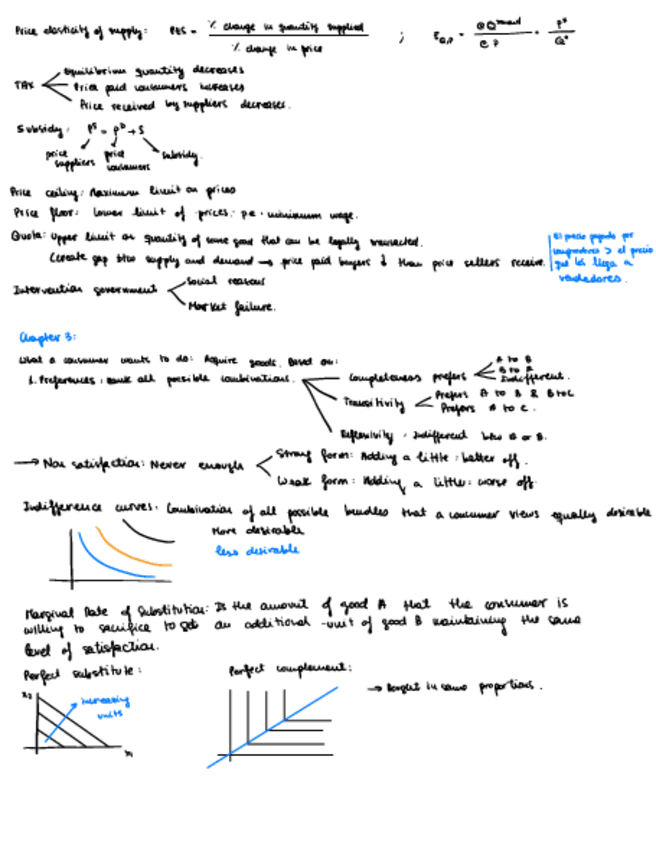 Price elasticity of supply: PES = % change in quantity supplied / % change in price ; E Q,P = ∂Q / ∂P · P* / Q*
Equilibrium quantity decreases
TAX Price paid consumers increases
Price received by suppliers decreases.
Subsidy: Pˢ = Pᴰ + S
price suppliers price consumers subsidy.
Price ceiling: Maximum limit on prices
Price floor: lower limit of prices: p.e. minimum wage.
Quota: Upper limit on quantity of some good that can be legally transacted.
Create gap btw supply and demand → price paid buyers than price sellers receive.
El precio pagado por
compradores > el precio
que les llega a
vendedores.
Intervention government Social reasons
Market failure.
Chapter 3:
What a consumer wants to do: Acquire goods. Based on:
1. Preferences: rank all possible combinations.
Completeness prefers A to B
B to A
Indifferent.
Transitivity Prefers A to B & B to C
Prefers A to C.
Reflexivity: Indifferent btw A or B.
→ Non satisfaction: Never enough Strong form: Adding a little: better off.
Weak form: Adding a little: worse off.
Indifference curves: Combination of all possible bundles that a consumer views equally desirable
More desirable
less desirable
Marginal Rate of Substitution: Is the amount of good A that the consumer is
willing to sacrifice to get an additional unit of good B maintaining the same
level of satisfaction.
Perfect substitute: Perfect complement:
x₂ increasing
units
x₁
→ Bought in same proportions.